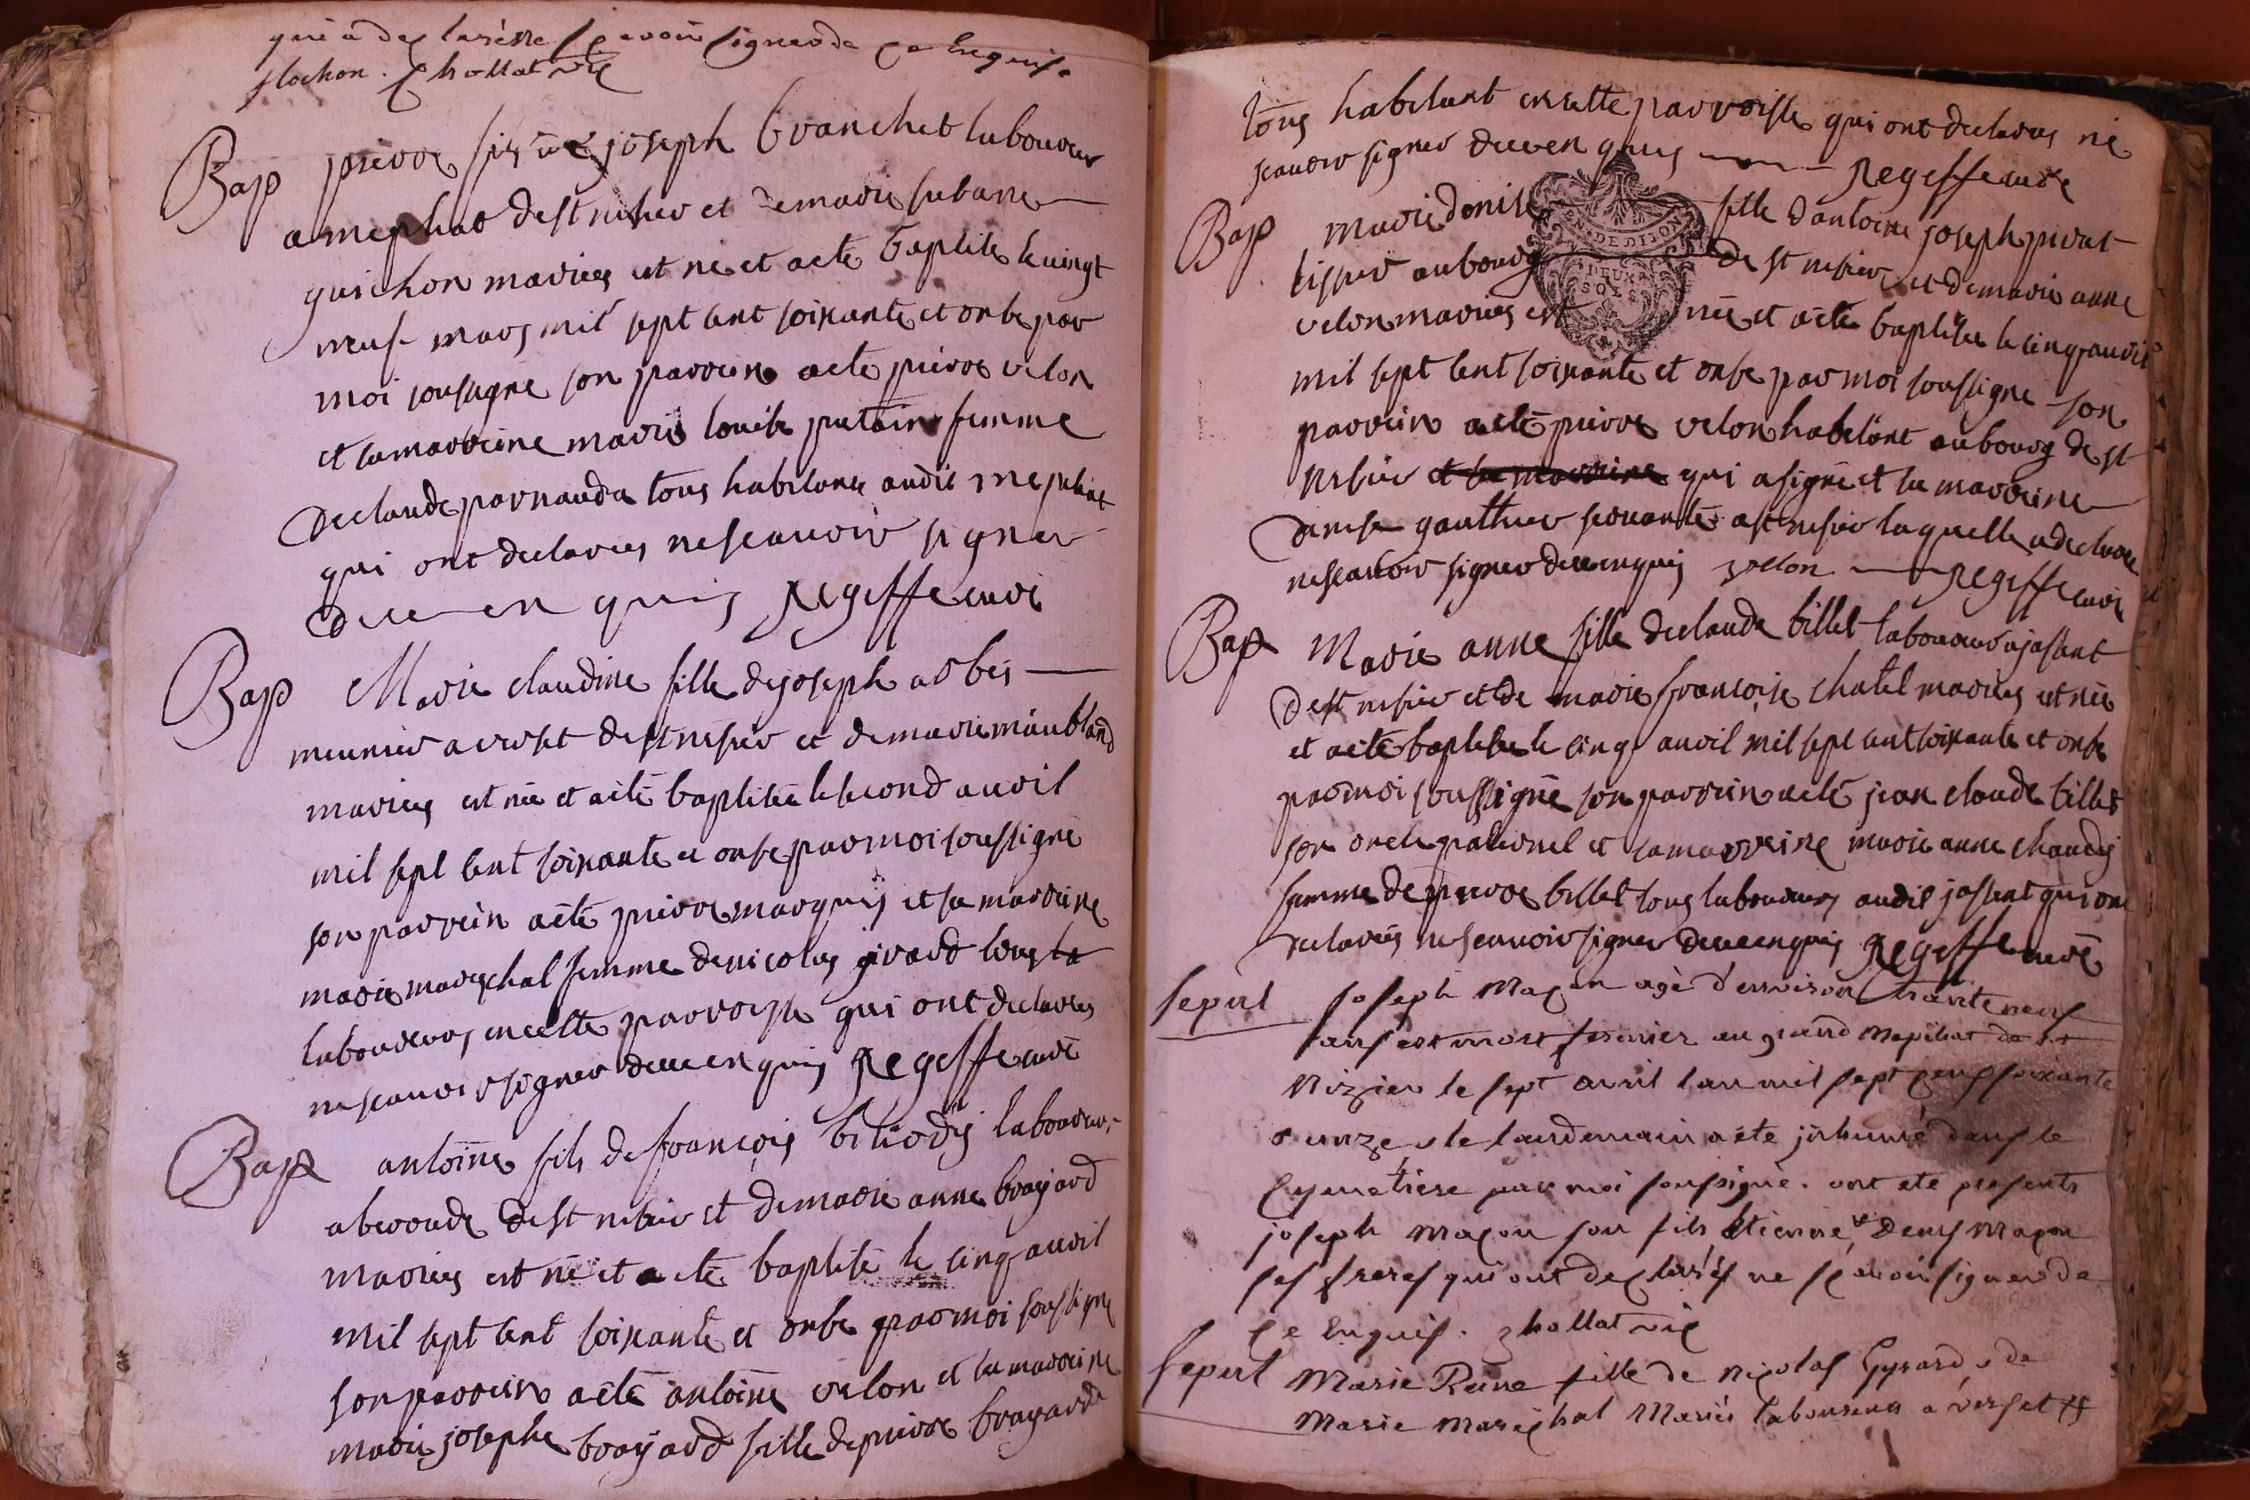 que a declarésne sçavoir signer de ce Enquise
flochon . Chollat vic
Bap pierre fils de joseph branchet laboureur
a mephat de st nisier et de marie subane
guichon mariés est né et a eté baptise le vingt
neuf mars mil sept cent soixante et onse par
moi sousigné son parrein a eté pierre velon
et sa marreine marie louise putain femme
de claude parnauda tous habitans audit mephat
qui ont declarés ne scauoir signer
de ce en quis Regeffe curé
Bap Marie claudine fille de joseph arbes
meunier a verset de st nisier et de marie maubland
mariés est née et a eté baptisée le second auril
mil sept cent soixante et onse par moi soussigné
son parrein a eté pierre marquis et sa marreine
marie mareschal femme de nicolas girard tous la
laboureurs en cette parroisse qui ont declarés
ne scauoir signer de ce en quis Regeffe curé
Bap antoine fils de françois biliodis laboureur
a beroude de st nisier et de marie anne brayard
mariés est né et a eté baptisé le cinq auril
mil sept cent soixante et onse par moi soussigné
son parrein a eté antoine velon et sa marreine
marie josephe brayard fille de pierre brayard
tous habitant en cette parroisse qui ont declarés ne
scauoir signer de ce en quis Regeffe curé
Bap marie denise fille d'antoine joseph privat
tisseur au bourg de st nisier et de marie anne
velon mariés est née et a eté baptisée le cinq auril
GEN. DE DIJON
DEUX
SOLS
mil sept cent soixante et onse par moi soussigné son
parrein a eté pierre velon habitant au bourg de st
nisier et sa marreine qui a signé et sa marreine
denise gauthier seruante a st nisier laquelle a declaré
ne scauoir signer de ce en quis velon Regeffe curé
Bap Marie anne fille de claude billet laboureur a jassant
de st nisier et de marie françoise chatel mariés est née
et a eté baptisée le cinq auril mil sept cent soixante et onse
par moi soussigné son parrein a eté jean claude billet
son oncle paternel et sa marreine marie anne chaudy
femme de pierre billet tous laboureurs audit jassant qui ont
declarés ne scauoir signer de ce en quis Regeffe curé
sepul joseph Maçon agé d'environ trante neuf
ans est mort fermier au grand Mepillat de st
Nizier le sept avril l'an mil sept cens soixante
& unze, & le landemain a été jnhumé dans le
Cymetiere par moi sousigné. ont été presents
joseph Maçon son fils Etienne & Denis Maçon
ses freres qui ont declarés ne sçavoir signer de
ce Enquis. Chollat vic
sepul Marie Reine fille de nicolas Gyrard & de
Marie Maréchal Mariés laboureurs a verset st